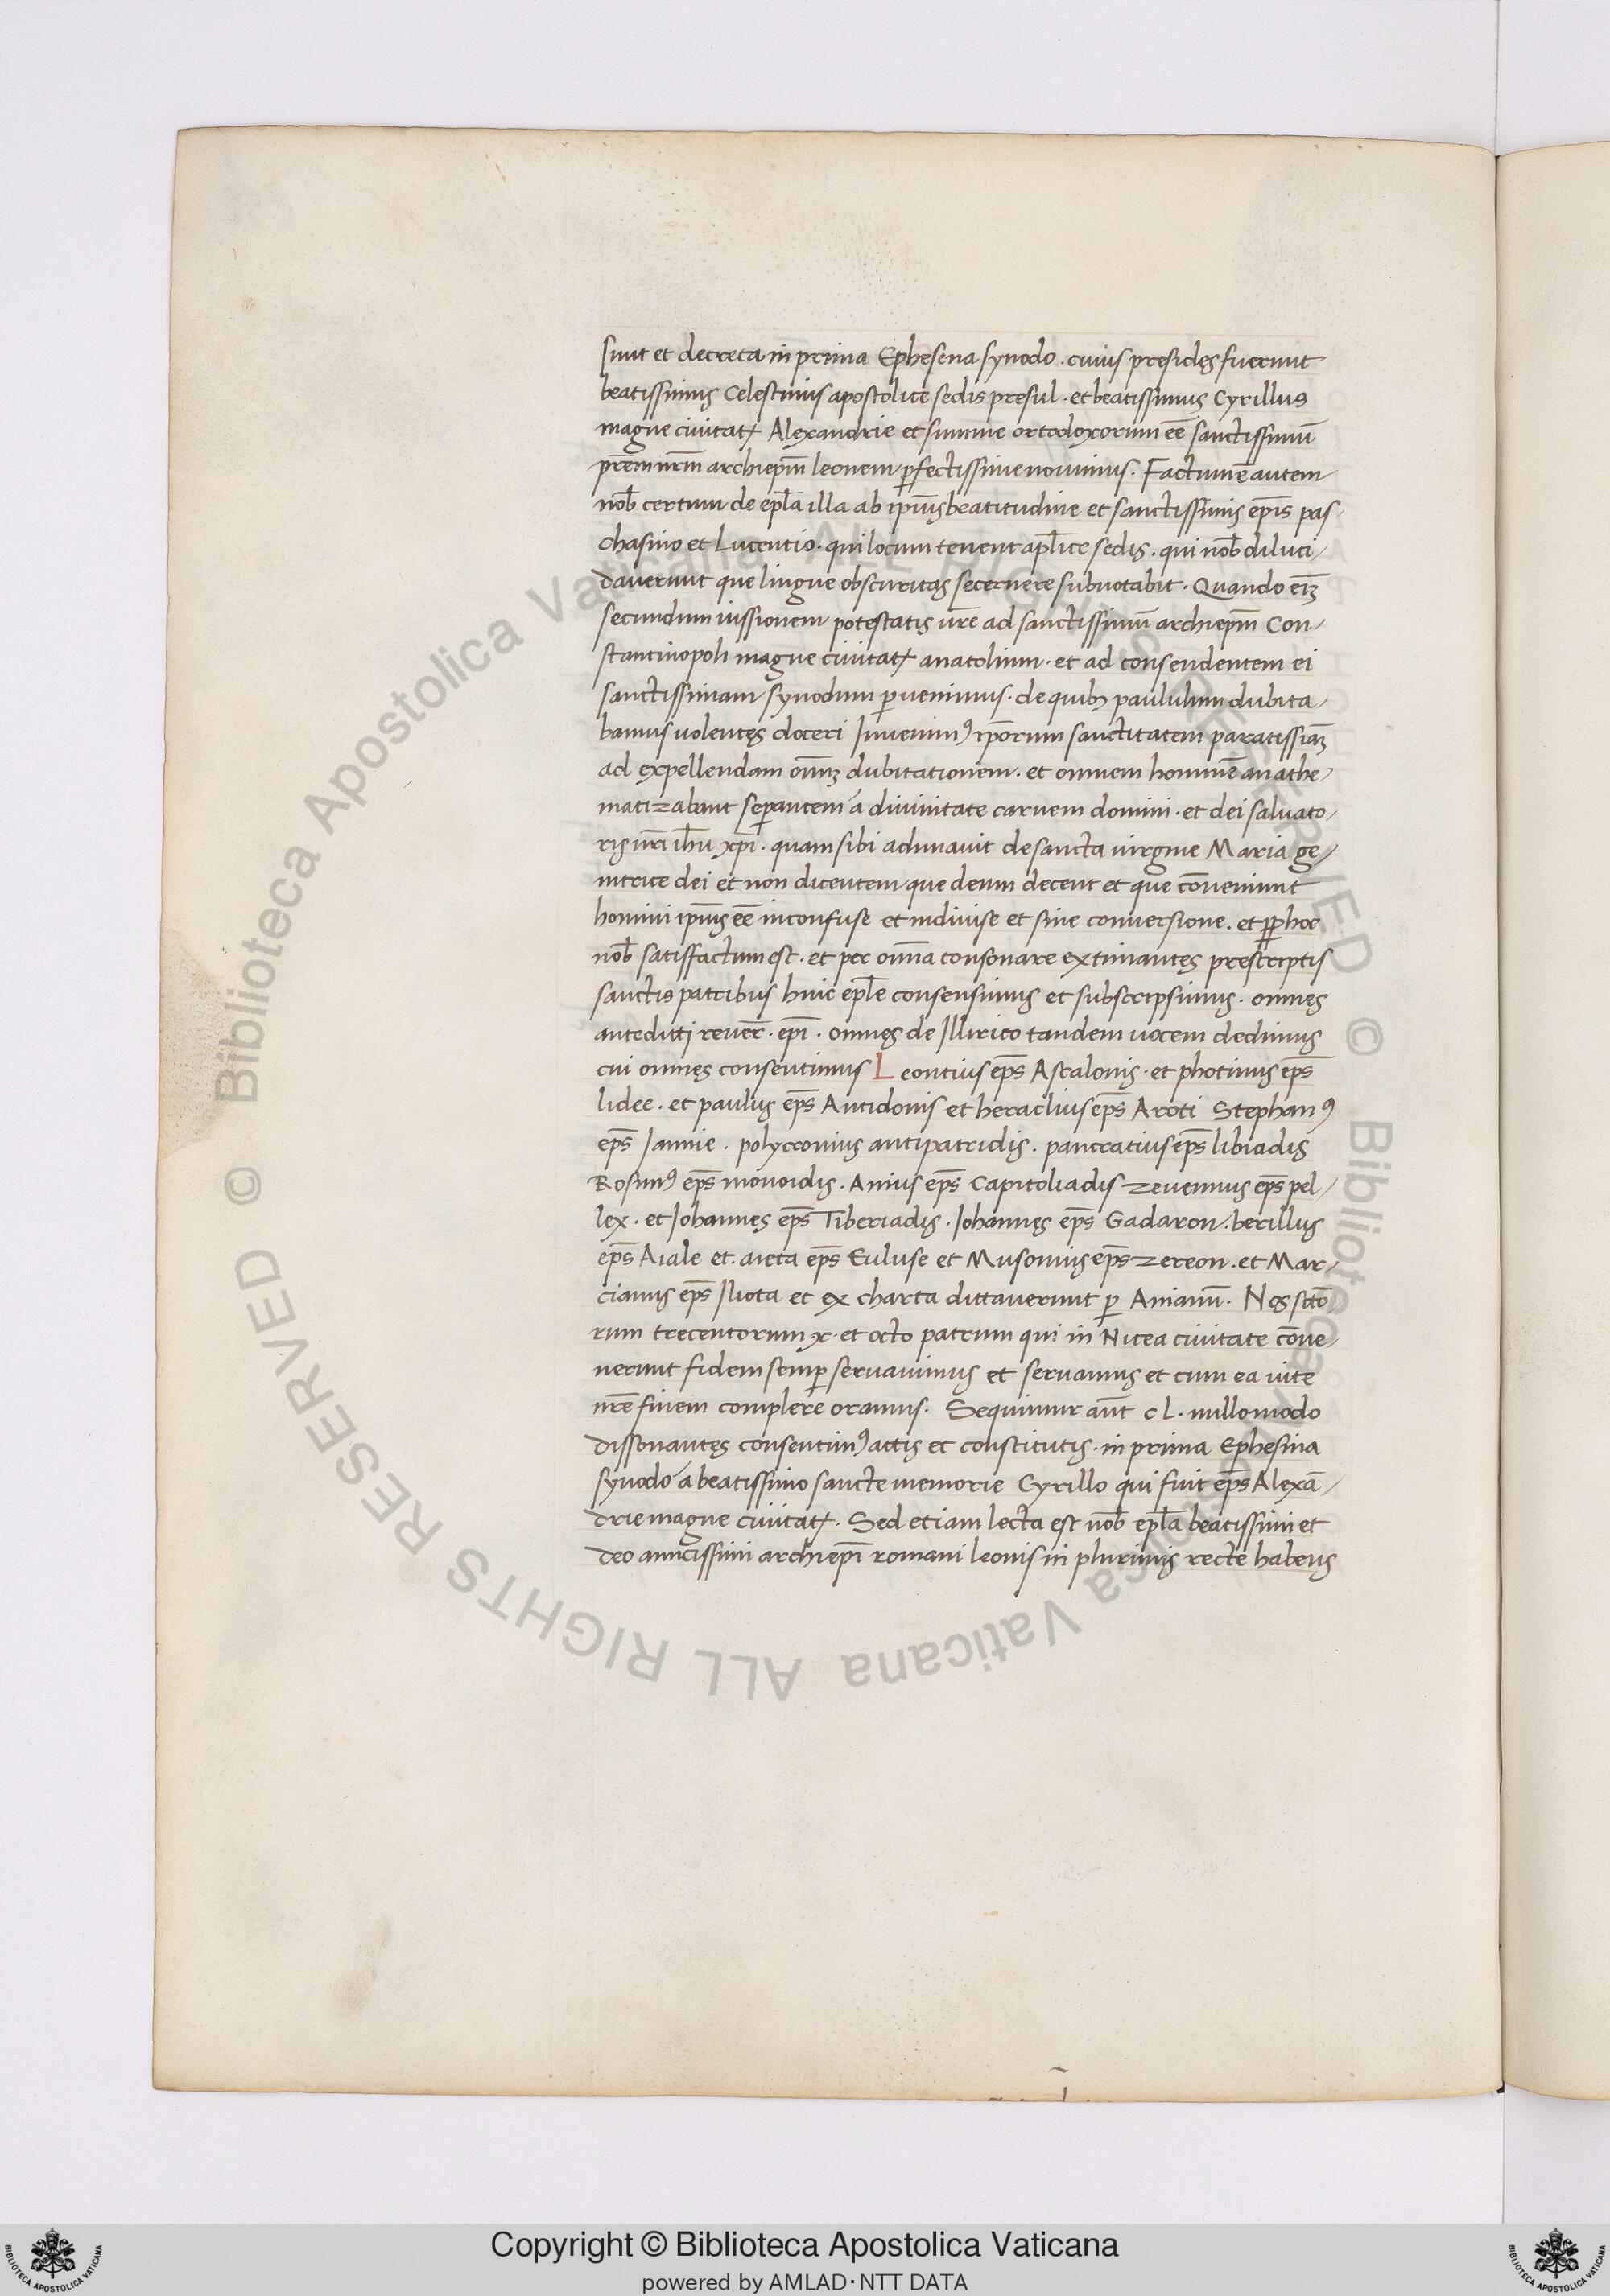 sunt et decreta in prima Ephesena synodo . cuius presides fuerunt
beatissimus Celestinus apostolice sedis presul . et beatissimus Cyrillus
magne ciuitatꝭ Alexandrie et summe ortodoxorum eē sanctissimū
prēm nrm̄ archiepm̄ leonem ꝑfectissime nouimus . Factum ē autem
nob̄ certum de epl̄a illa ab ipīus beatitudine et sanctissimis epīs pas-
chasino et Lucentio . qui locum tenent apl̄ice sedis . qui nob̄ diluci-
dauerunt que lingue obscuritas secernere subnotabit . Quando eīꝫ
secundum iussionem potestatis ur̄e ad sanctissimū archiepm̄ Con-
stantinopoli magne ciuitatꝭ anatolium . et ad consendentem ei
sanctissimam synodum ꝑuenimus . de quibꝫ paululum dubita-
bamus uolentes doceri Inuenimꝰ ipōrum sanctitatem paratissiāꝫ
ad expellendam om̄eꝫ dubitationem . et omnem hominē anathe-
matizabant seꝑantem a diuinitate carnem domini . et dei saluato-
ris nrī ih̄u xpī . quam sibi adunauit de sancta uirgine Maria ge-
nitrice dei et non dicentem que deum decent et que cōueniunt
homini ipīus eē inconfuse et indiuise et sine conuersione . et ꝑꝑ hoc
nob̄ satisfactum est . et per omīa consonare extimantes prescriptis
sanctis patribus huic epl̄e consensimus et subscripsimus . omnes
antedicti reuer̄ . epī . omnes de Illirico tandem uocem dedimus
cui omnes consentimus Leontius ep̄s Ascalonis . et photinus ep̄s
lidee . et paulus ep̄s Antidonis et heraclius ep̄s Aroti Stephanꝰ
ep̄s Iamnie . polycronius antipatridis . pancratius ep̄s libiadis
Rosimꝰ ep̄s minoidis . Anius ep̄s Capitoliadis zenennius ep̄s pel-
lex . et Johannes ep̄s Tiberiadis . Johannes ep̄s Gadaron . berillus
ep̄s Aiale et . areta ep̄s Euluse et Musonius ep̄s zereon . et Mar-
cianus ep̄s Iliota et ex charta dictauerunt ꝑ Anianū . Nos sctō-
rum trecentorum x . et octo patrum qui in Nicea ciuitate cōue-
nerunt fidem semꝑ seruauimus et seruamus et cum ea uite
nr̄e finem complere oramus . Sequimur aūt c L . nullo modo
dissonantes consentimꝰ actis et constitutis . in prima Ephesina
synodo a beatissimo sancte memorie Cyrillo qui fuit ep̄s Alexā-
drie magne ciuitatꝭ . Sed etiam lecta est nob̄ epl̄a beatissimi et
deo amicissimi archiepī romani leonis in plurimis recte habens
Copyright © Biblioteca Apostolica Vaticana
powered by AMLAD·NTT DATA